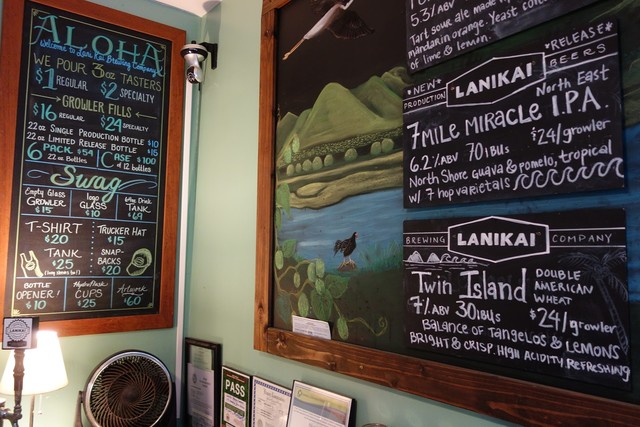 ALOHA
Welcome to Lani Kai Brewing Company
WE POUR 3oz TASTERS
$1 REGULAR $2 SPECIALTY
GROWLER FILLS
$16 REGULAR $24 SPECIALTY
22 oz SINGLE PRODUCTION BOTTLE $10
22 oz LIMITED RELEASE BOTTLE $15
6 PACK $54 CASE $100
22 oz BOTTLES of 12 BOTTLES
Swag
Empty Glass GROWLER $15
logo GLASS $10
64oz Drink TANK $69
T-SHIRT $20
TRUCKER HAT $15
TANK $25
SNAP-BACKS $20
BOTTLE OPENER! $10
Hydroflask CUPS $25
Artwork $60
LANIKAI
PASS
5.3% ABV
Tart sour ale made w/
mandarin orange. Yeast
of lime & lemon.
*NEW* PRODUCTION
LANIKAI
*RELEASE* BEERS
North East
7 MILE MIRACLE I.P.A.
6.2% ABV 70 IBUS $24/growler
North Shore Guava & pomelo, tropical
w/ 7 hop varietals
BREWING LANIKAI COMPANY
Twin Island DOUBLE AMERICAN WHEAT
7% ABV 30 IBUS $24/growler
BALANCE OF TANGELOS & LEMONS
BRIGHT & CRISP. HIGH ACIDITY. REFRESHING